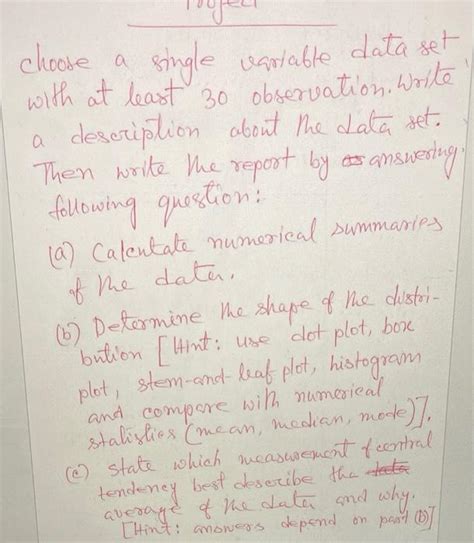 Project
choose a single variable data set
with at least 30 observation. Write
a description about the data set.
Then write the report by answering
following question:
(a) Calculate numerical summaries
of the data.
(b) Determine the shape of the distri-
bution [Hint: use dot plot, box
plot, stem-and-leaf plot, histogram
and compare with numerical
statistics (mean, median, mode)].
(c) state which measurement of central
tendency best describe the data
average of the data and why.
[Hint: answers depend on part (b)]